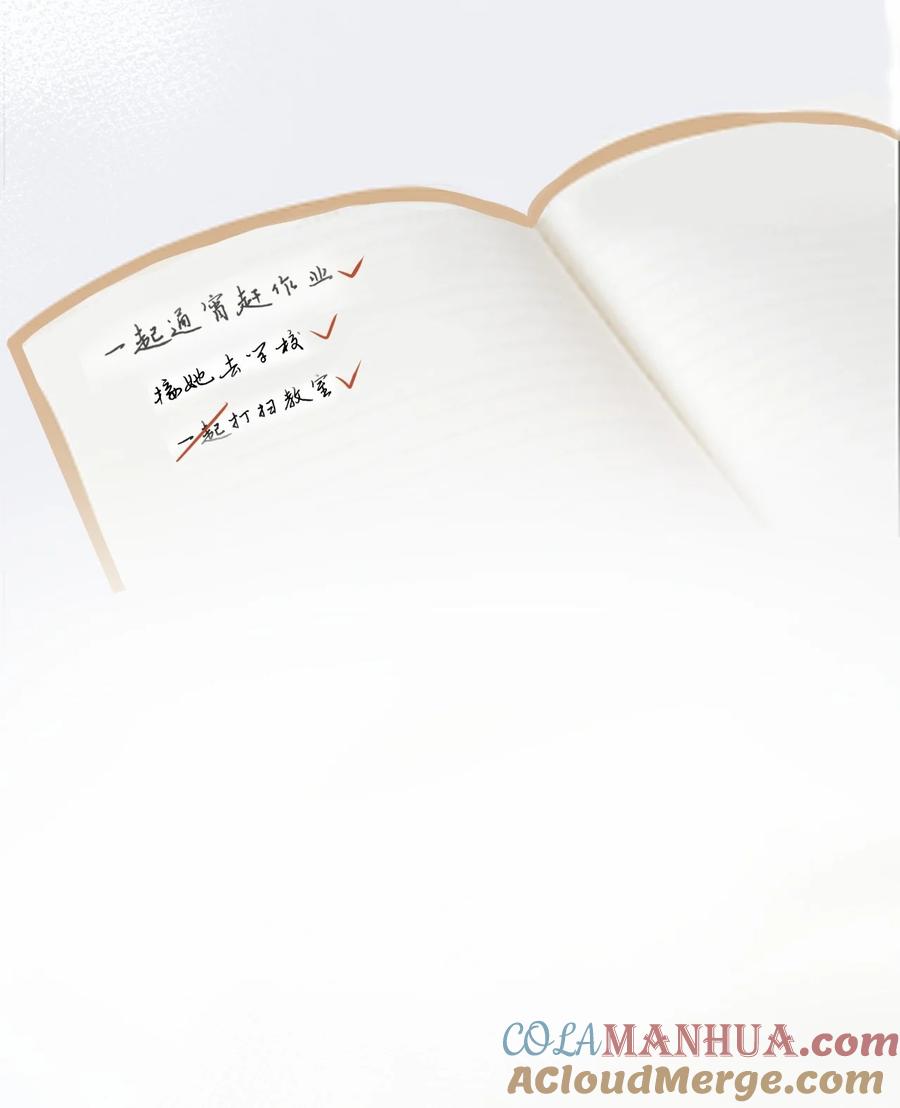 一起通宵赶作业
接她去学校
一起打扫教室
COLAMANHUA.com
ACloudMerge.com